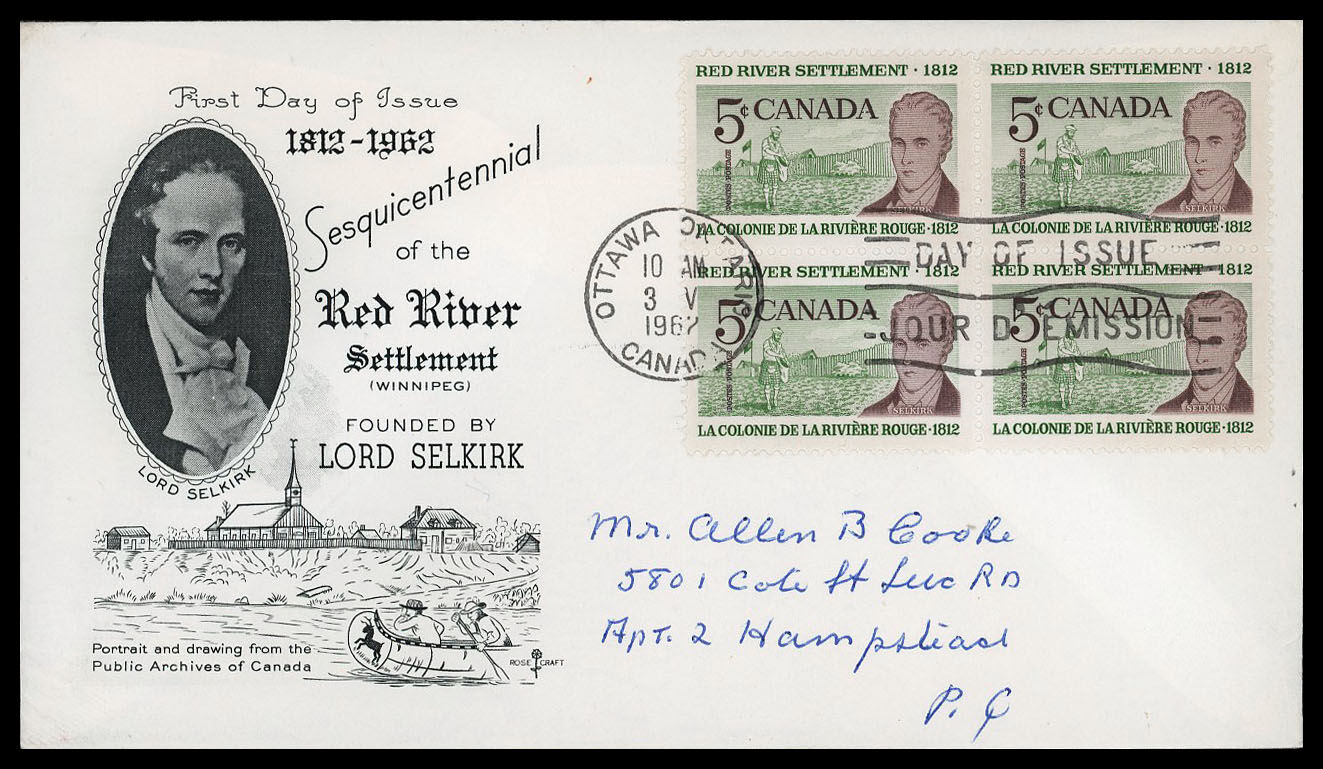 First Day of Issue
1812-1962
Sesquicentennial
of the
Red River
Settlement
(WINNIPEG)
FOUNDED BY
LORD SELKIRK
LORD SELKIRK
Portrait and drawing from the
Public Archives of Canada
ROSE CRAFT
RED RIVER SETTLEMENT · 1812
5¢ CANADA
POSTES POSTAGE
SELKIRK
LA COLONIE DE LA RIVIÈRE ROUGE · 1812
RED RIVER SETTLEMENT · 1812
5¢ CANADA
POSTES POSTAGE
SELKIRK
LA COLONIE DE LA RIVIÈRE ROUGE · 1812
RED RIVER SETTLEMENT · 1812
5¢ CANADA
POSTES POSTAGE
SELKIRK
LA COLONIE DE LA RIVIÈRE ROUGE · 1812
RED RIVER SETTLEMENT · 1812
5¢ CANADA
POSTES POSTAGE
SELKIRK
LA COLONIE DE LA RIVIÈRE ROUGE · 1812
OTTAWA ONTARIO
10 AM
3 V
1962
CANADA
DAY OF ISSUE
JOUR D'EMISSION
Mr. Allen B Cooke
5801 Cote St Luc RD
Apt. 2 Hampstead
P. Q